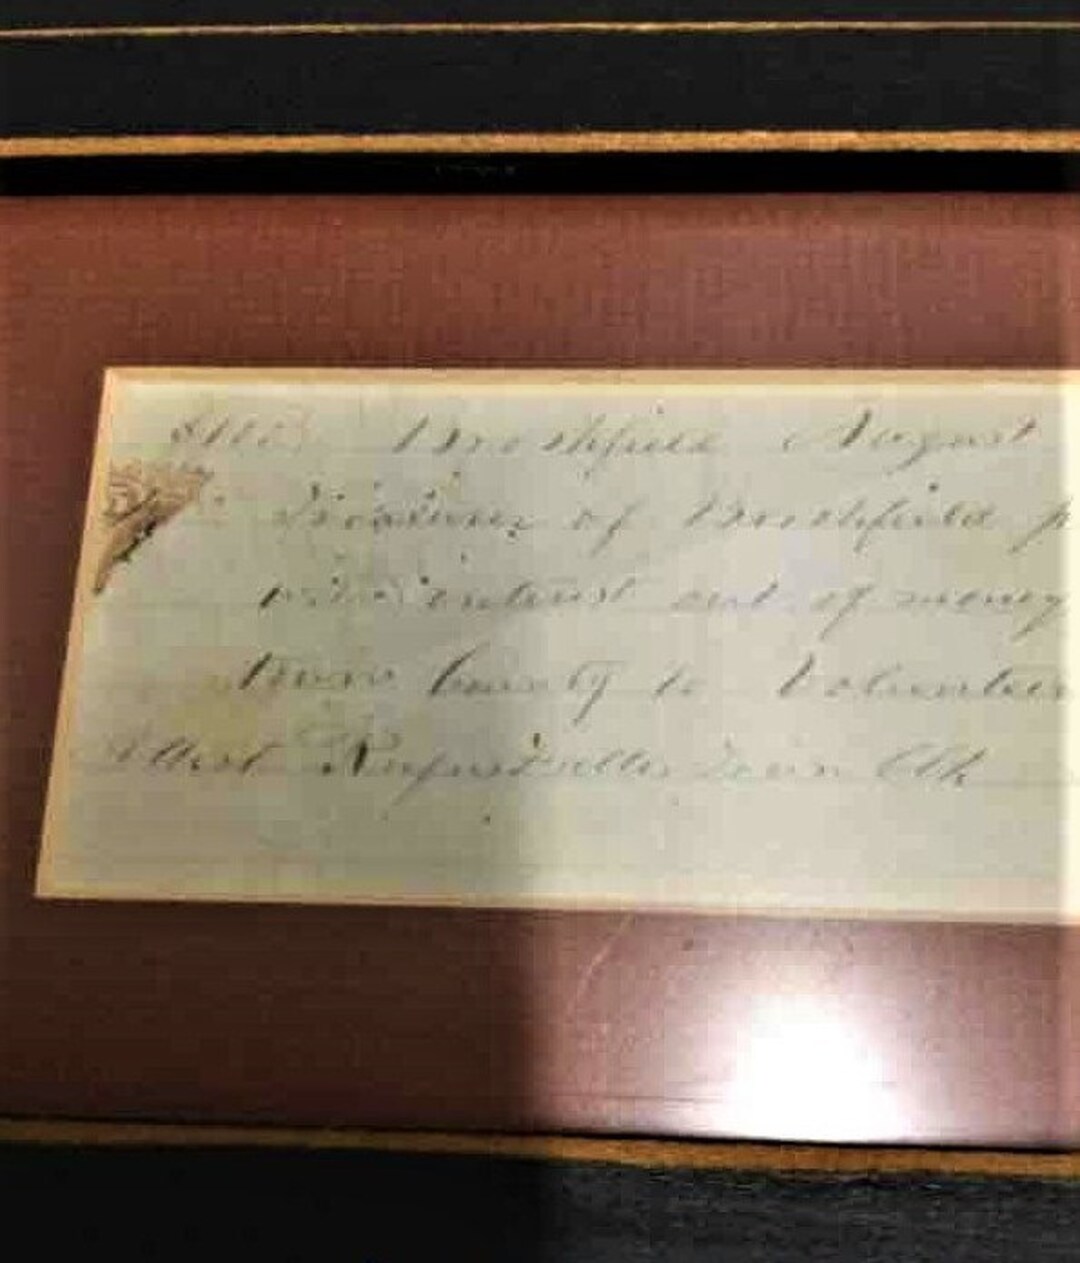 Brookfield August
Treasurer of Brookfield
interest out of money
Town bounty to Volunteer
Attest Rufus Town Clk